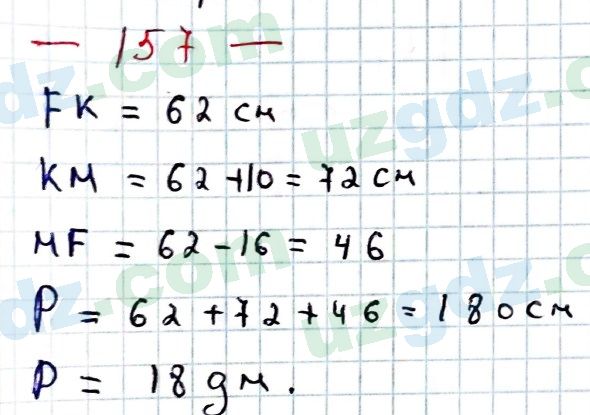 — 157 —
FK = 62 см
KM = 62+10 = 72 см
MF = 62-16 = 46
P = 62+72+46 = 180 см
P = 18 дм.
uzgdz.com